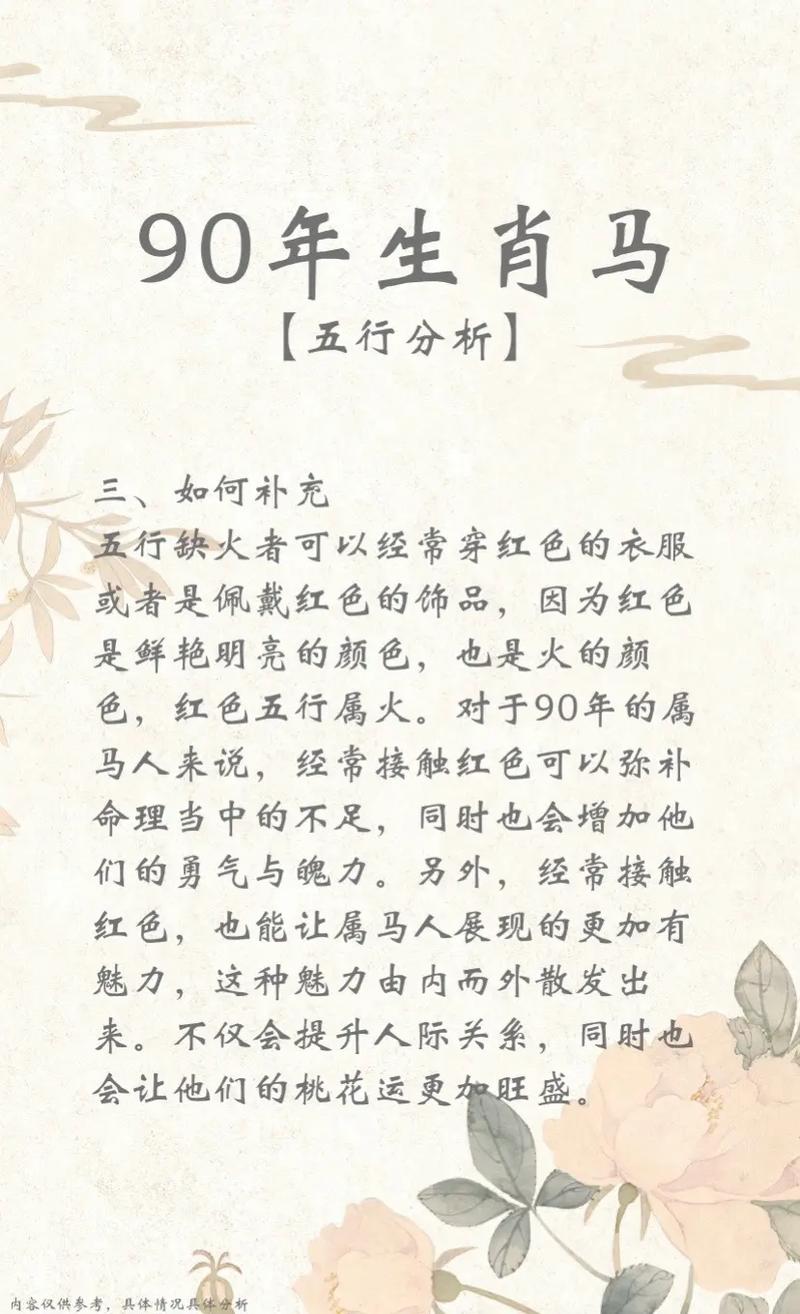 90年生肖马
【五行分析】
三、如何补充
五行缺火者可以经常穿红色的衣服
或者是佩戴红色的饰品，因为红色
是鲜艳明亮的颜色，也是火的颜
色，红色五行属火。对于90年的属
马人来说，经常接触红色可以弥补
命理当中的不足，同时也会增加他
们的勇气与魄力。另外，经常接触
红色，也能让属马人展现的更加有
魅力，这种魅力由内而外散发出
来。不仅会提升人际关系，同时也
会让他们的桃花运更加旺盛。
内容仅供参考，具体情况具体分析